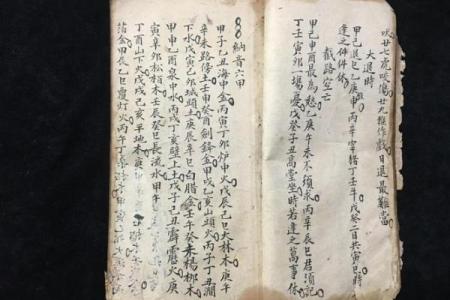 吠廿七虎咬傷廿九猴作戲日退最難當
大退時
甲己退巳乙庚申丙辛宰猪丁壬午戊癸二日共寅巳時
逢之件件休
截路空亡
甲己申酉最為愁乙庚午未不須求丙辛辰巳君須記
丁壬寅卯一場憂戊癸子丑高堂坐時若逢之萬事休
納音六甲
甲子乙丑海中金丙寅丁卯炉中火戊辰己巳大林木庚午
辛未路傍土壬申癸酉劍鋒金甲戌乙亥山頭火丙子丁丑澗
下水戊寅己卯城頭土庚辰辛巳白腊金壬午癸未楊柳木
甲申乙酉泉中水丙戌丁亥壁上土戊子己丑霹靂火庚
寅辛卯松栢木壬辰癸巳長流水甲午
丁酉山下火戊戌己亥平地木庚
箔金甲辰乙巳覆灯火丙午丁